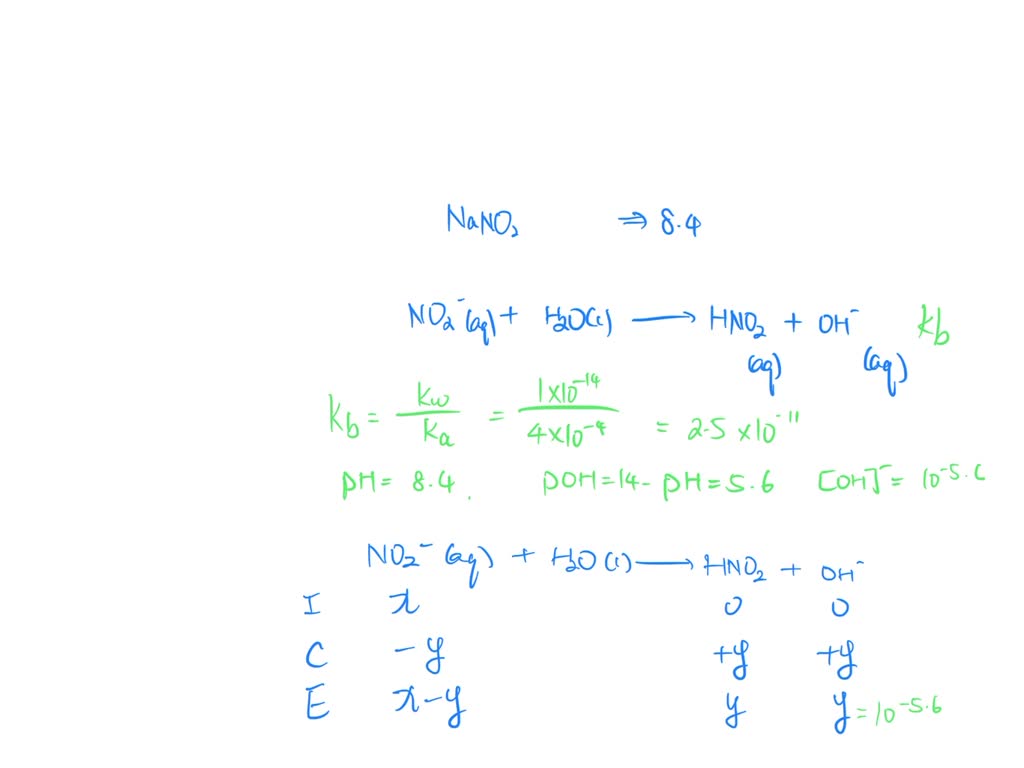 NaNO₂ ⇒ 8.4
NO₂⁻(aq) + H₂O(l) ⟶ HNO₂ + OH⁻ Kb
(aq) (aq)
Kb = Kw/Ka = 1×10⁻¹⁴/4×10⁻⁴ = 2.5 ×10⁻¹¹
pH = 8.4. pOH = 14 - pH = 5.6 [OH]⁻ = 10⁻⁵·⁶
NO₂⁻ (aq) + H₂O (l) ⟶ HNO₂ + OH⁻
I x 0 0
C -y +y +y
E x-y y y = 10⁻⁵·⁶